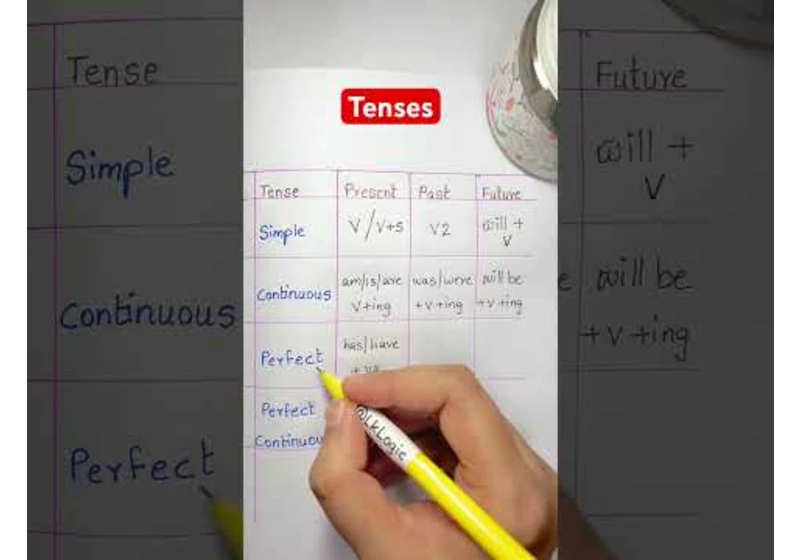 Tenses
Tense Present Past Future
Simple V/V+s V2 will +
V
Continuous am/is/are was/were will be
V+ing +v+ing +v+ing
Perfect has/have
Perfect
Continuou
@LkLogic
Tense
Simple
Continuous
Perfect
Future
will +
V
e will be
+v+ing